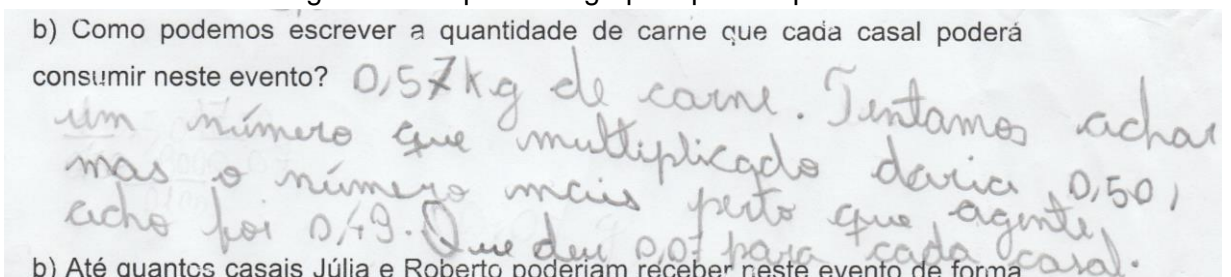 b) Como podemos escrever a quantidade de carne que cada casal poderá
consumir neste evento? 0,57kg de carne. Tentamos achar
um número que multiplicado daria 0,50,
mas o número mais perto que agente
acho foi 0,49. Que deu 0,07 para cada casal.
b) Até quantos casais Júlia e Roberto poderiam receber neste evento de forma